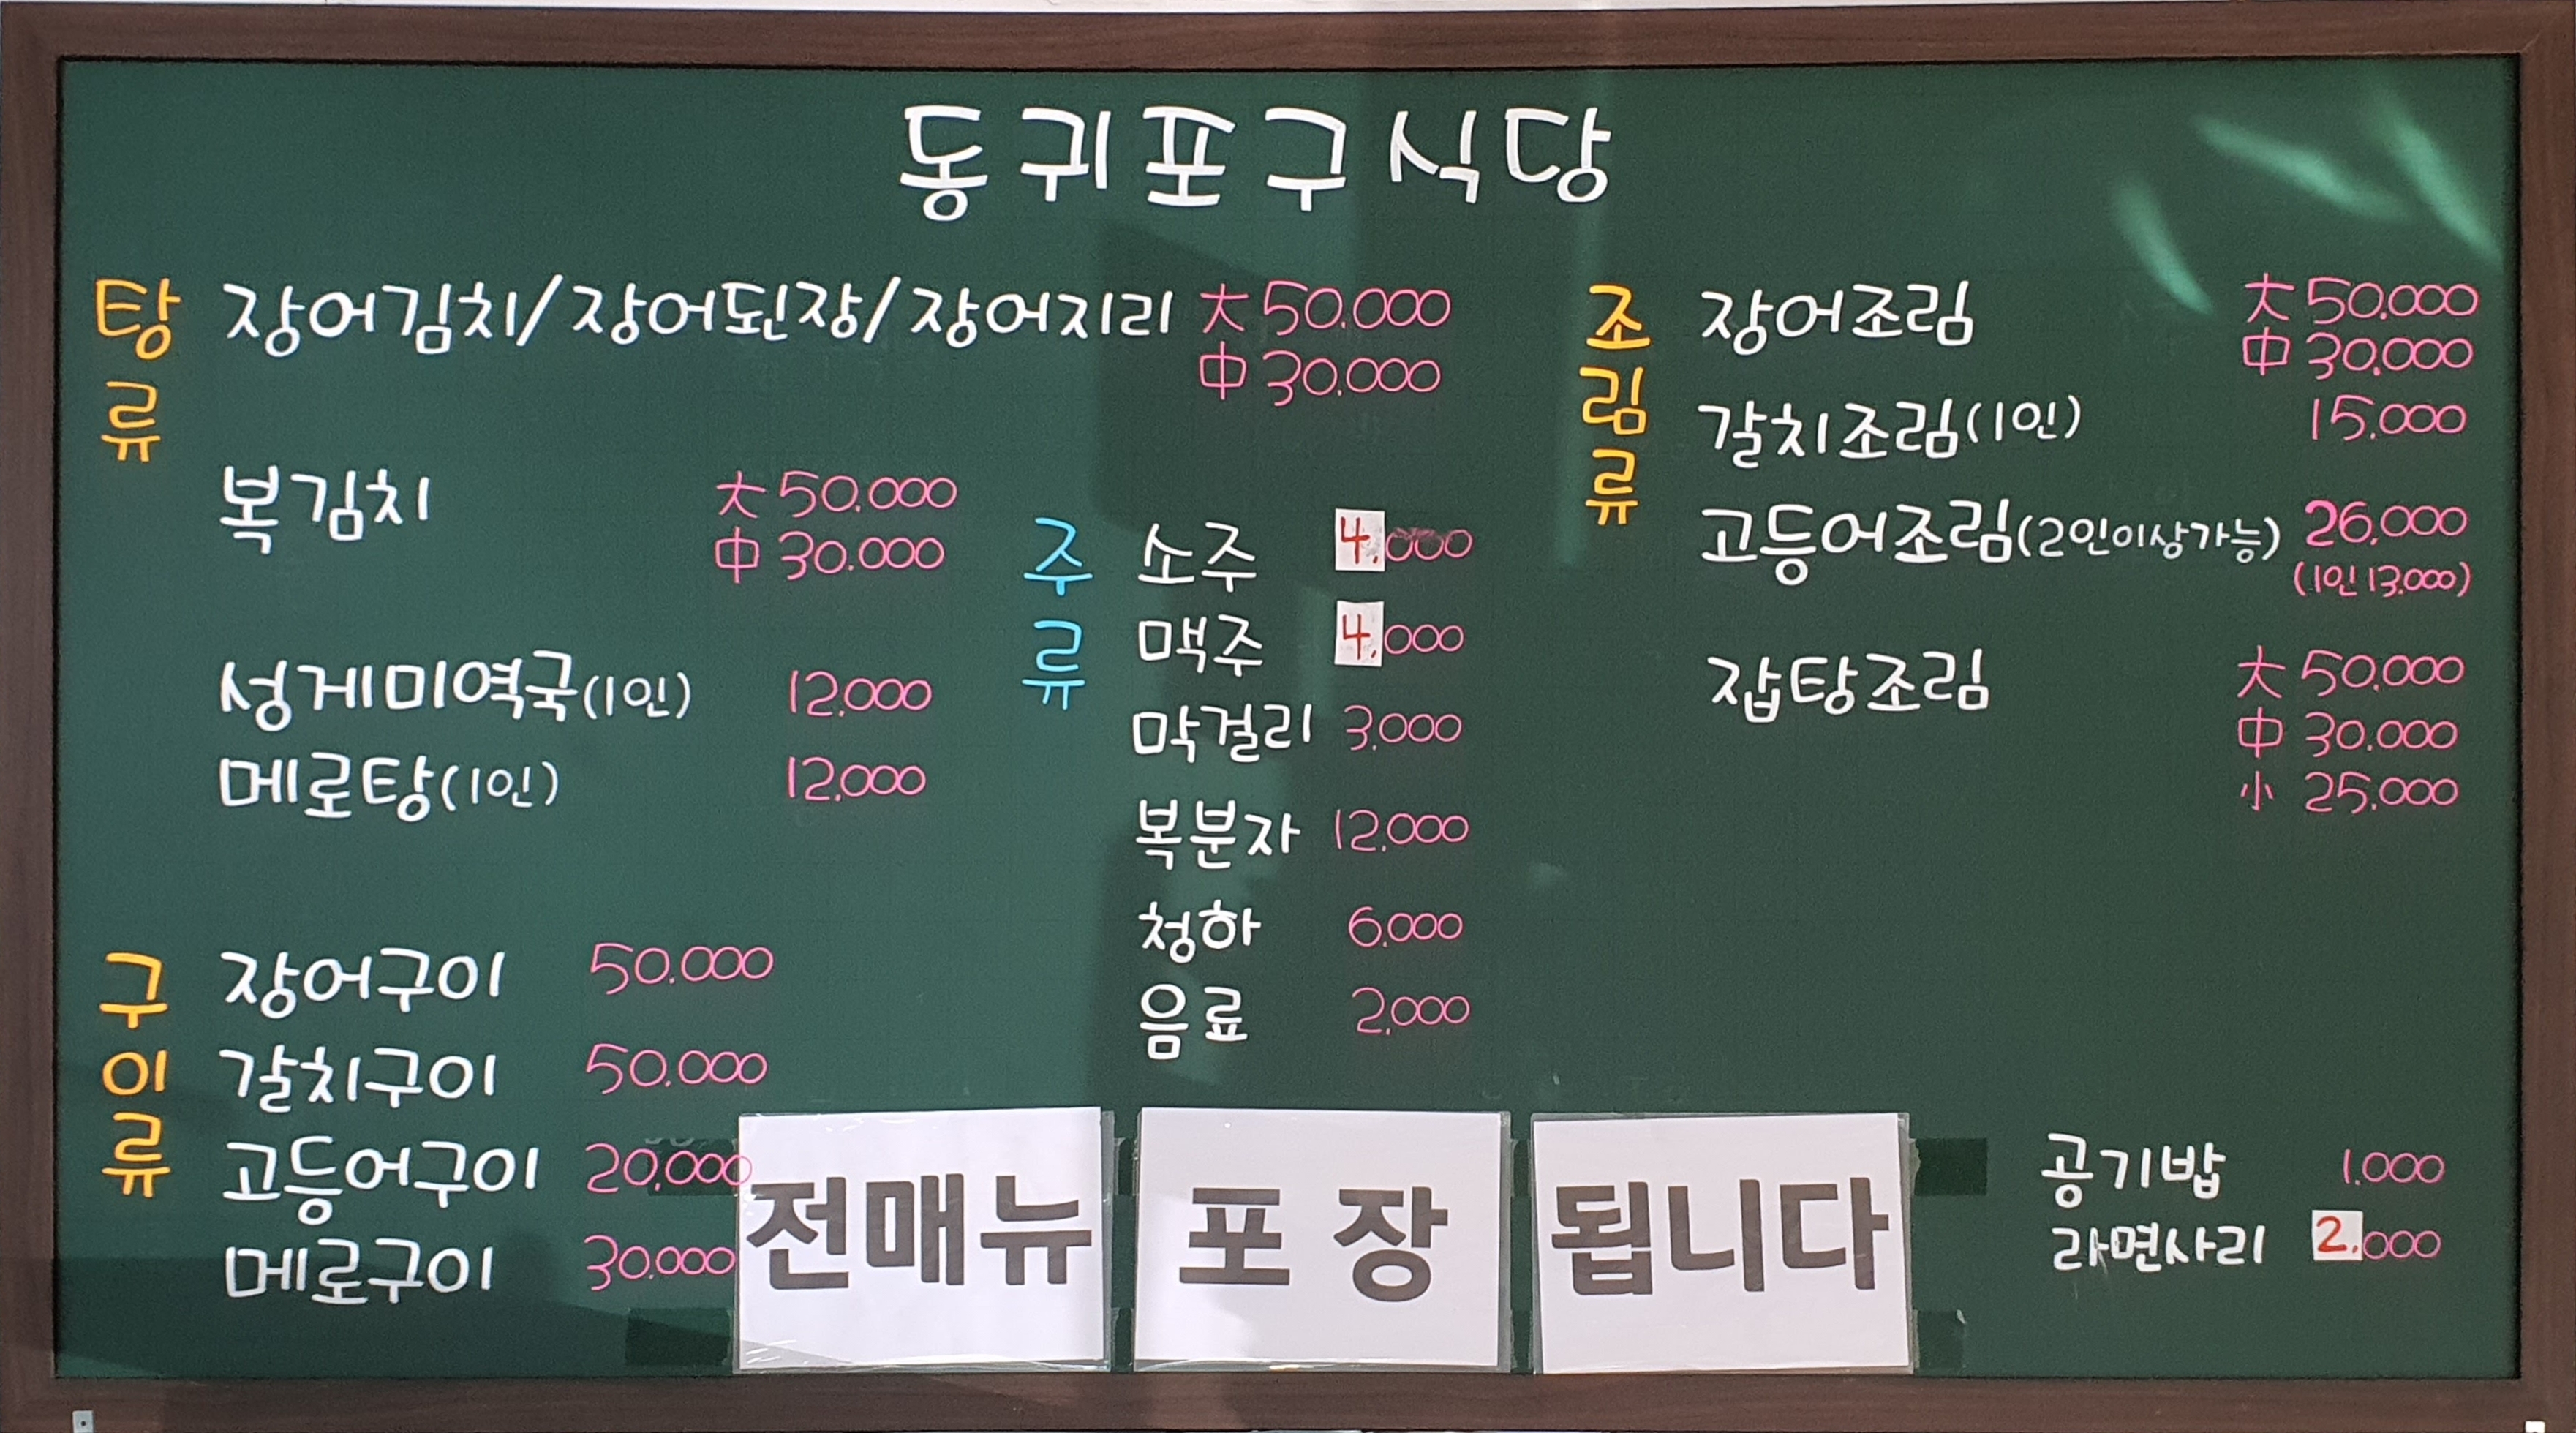 동귀포구식당
탕류
장어김치/장어된장/장어지리 大 50.000
中 30.000
복김치 大 50.000
中 30.000
성게미역국(1인) 12.000
메로탕(1인) 12.000
구이류
장어구이 50.000
갈치구이 50.000
고등어구이 20.000
메로구이 30.000
주류
소주 4.000
맥주 4.000
막걸리 3.000
복분자 12.000
청하 6.000
음료 2.000
조림류
장어조림 大 50.000
中 30.000
갈치조림(1인) 15.000
고등어조림(2인이상가능) 26.000
(1인 13.000)
잡탕조림 大 50.000
中 30.000
小 25.000
공기밥 1.000
라면사리 2.000
전매뉴 포장 됩니다